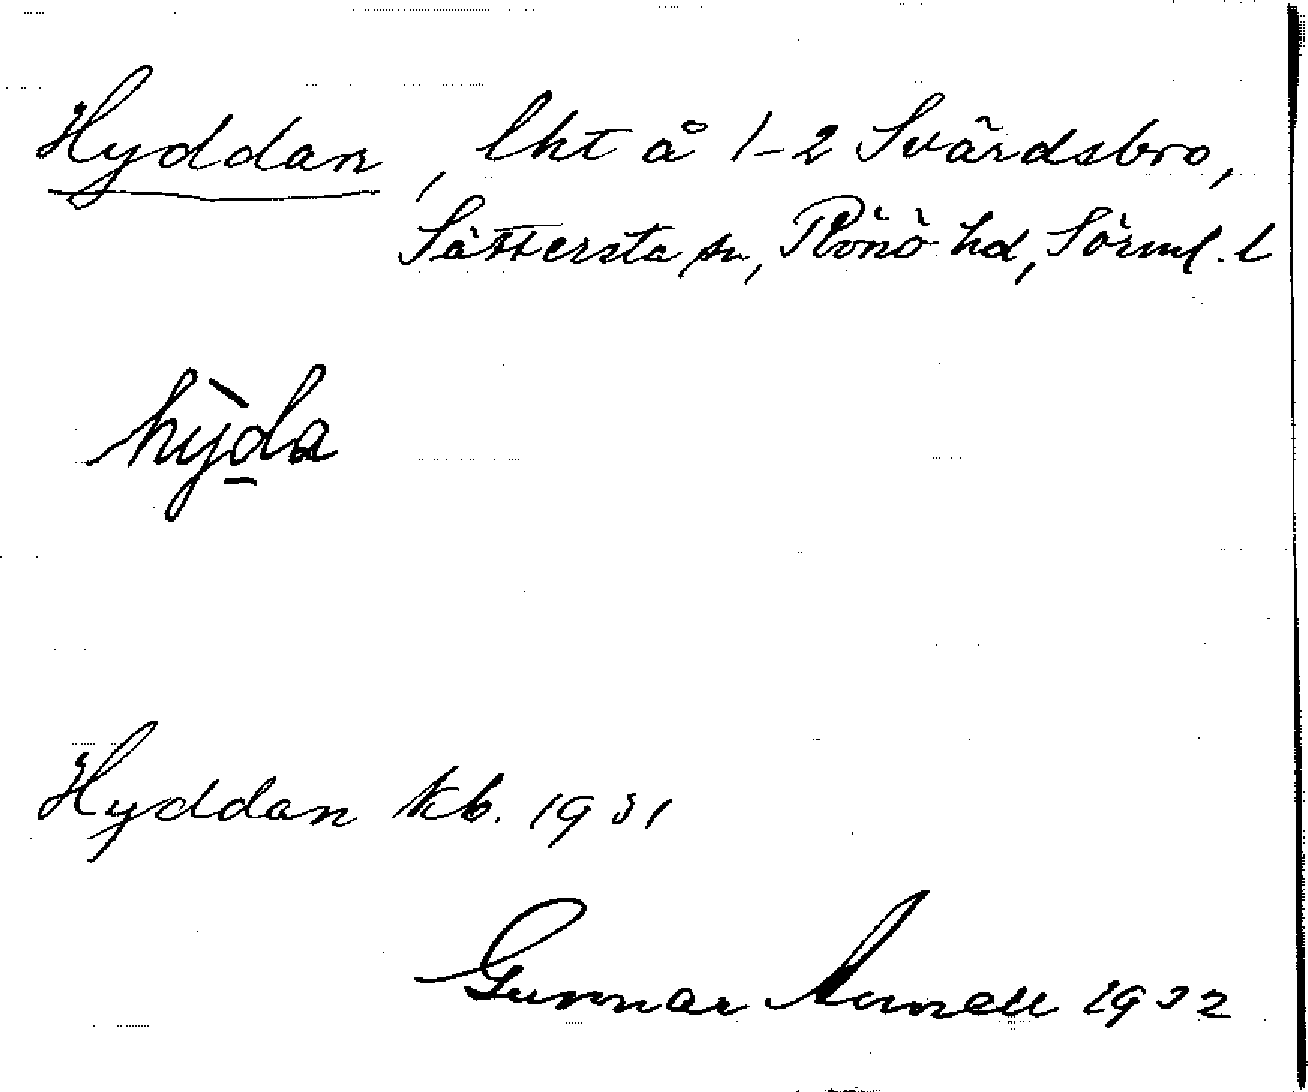 Hyddan, lht å 1-2 Svärdsbro,
Sättersta sn, Rönö hd, Sörml. l
hỳd̲a
Hyddan kb. 1931
Gunnar 1932